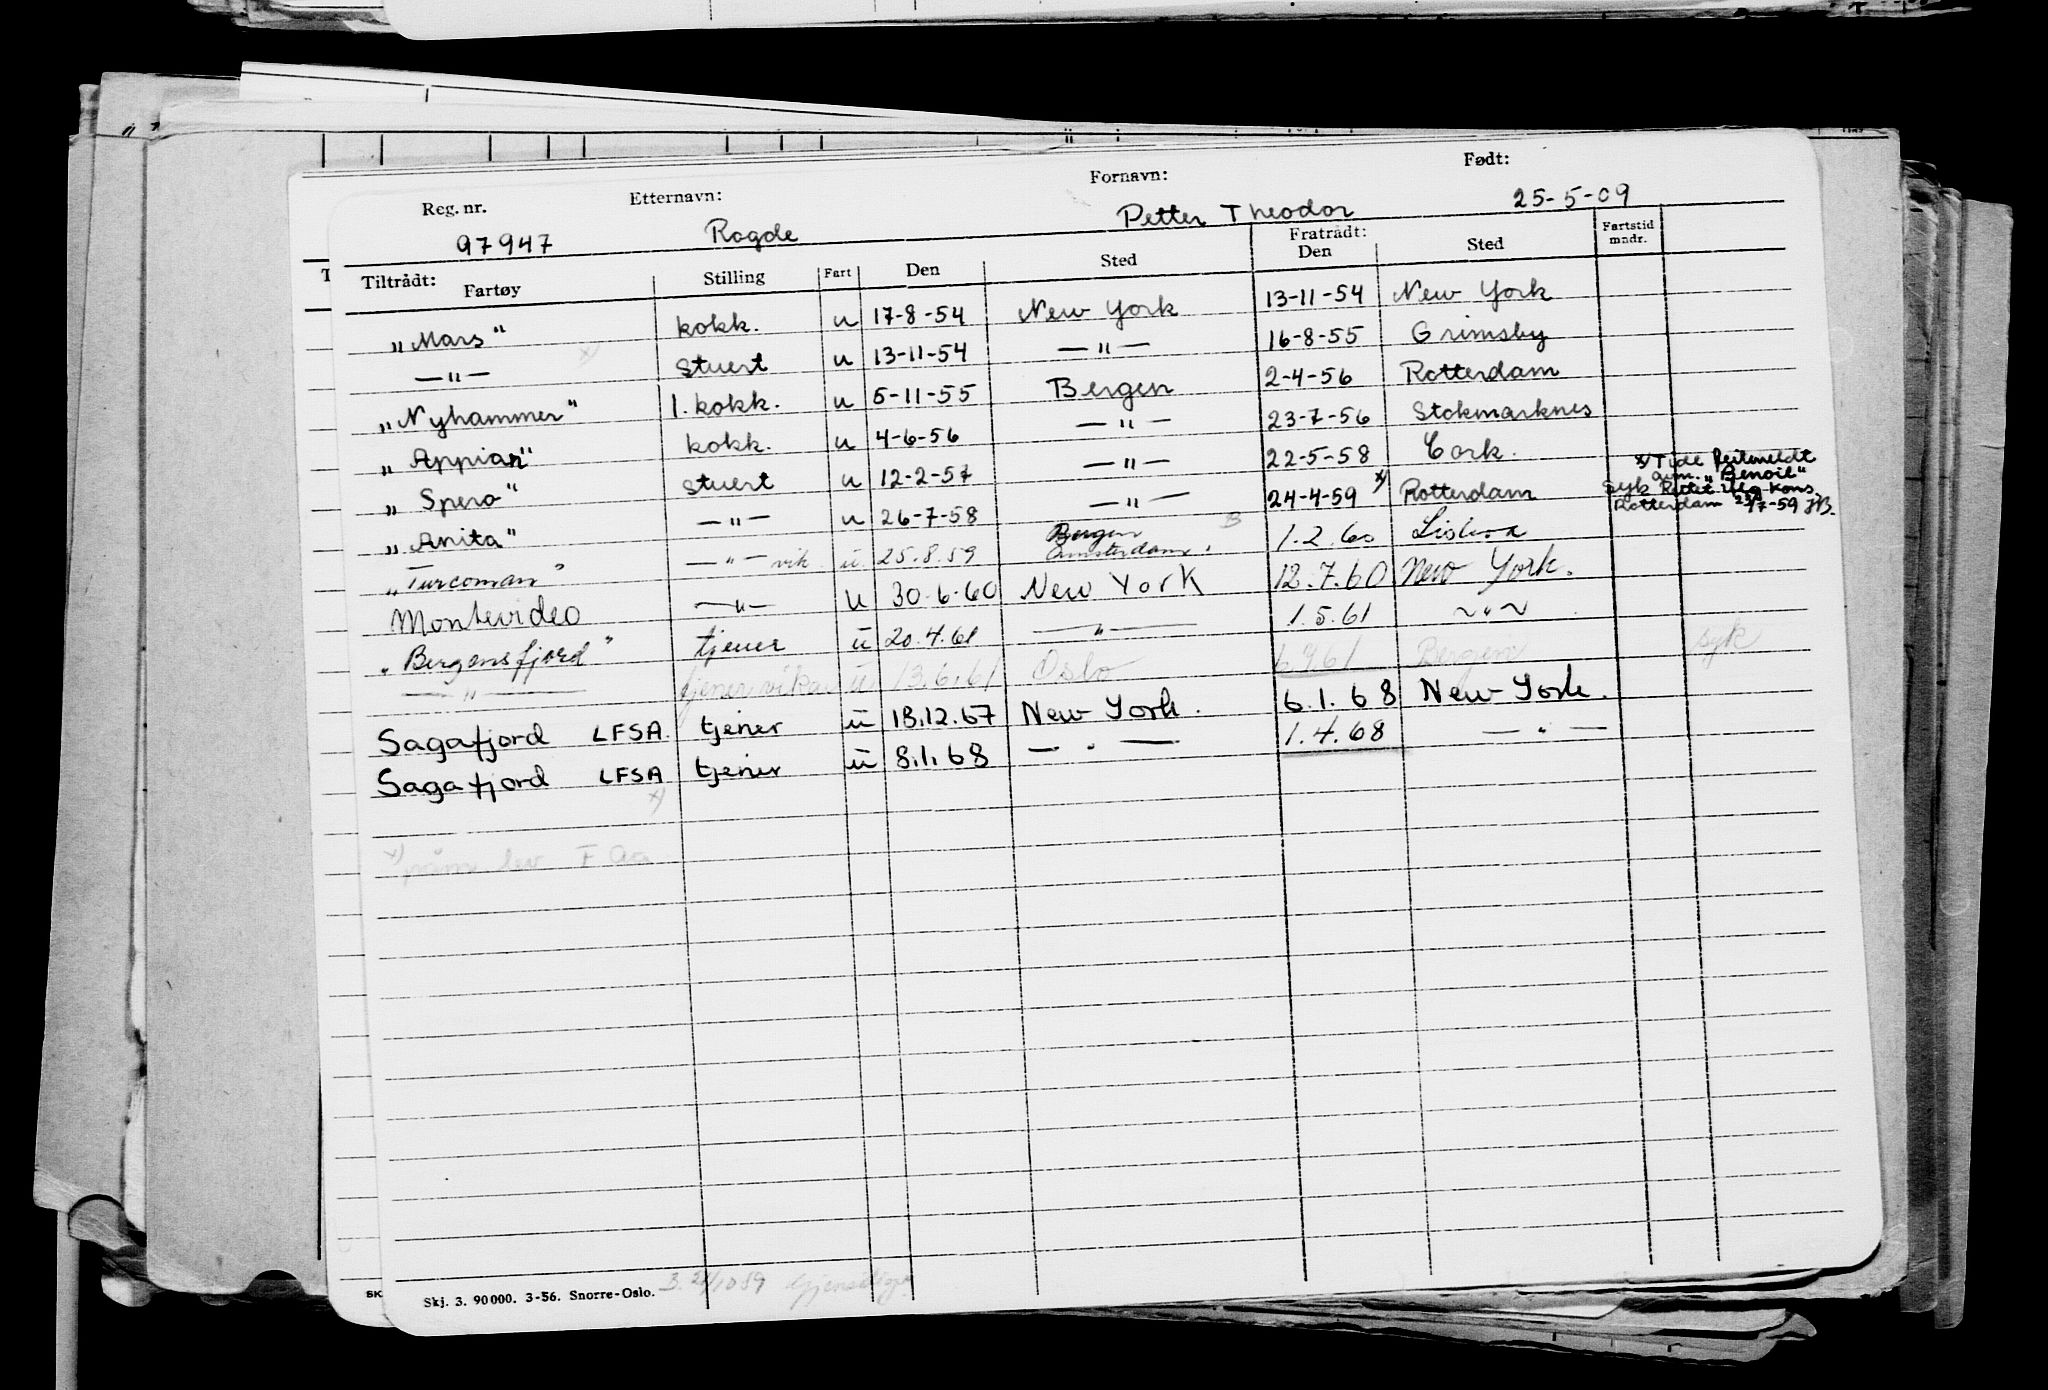 Reg. nr. Etternavn: Fornavn: Født:
97947 Ragde Petter Theodor 25-5-09
Tiltrådt: Fartøy Stilling Fart Den Sted Fratrådt: Den Sted Fartstid mndr.
„Mars" kokk. u 17-8-54 New York 13-11-54 New York
—"— x) stuert u 13-11-54 —"— 16-8-55 Grimsby
„Nyhammer" 1. kokk. u 5-11-55 Bergen 2-4-56 Rotterdam
„Appian" kokk. u 4-6-56 —"— 23-7-56 Stokmarknes
„Spero" stuert u 12-2-57 —"— 22-5-58 Cork.
„Anita" —"— u 26-7-58 —"— 24-4-59 x) Rotterdam
x) Tidl. feilmeldt
„Benoil"
Syk Kons.
Rotterdam 23/7-59 JB.
„Turcoman" —"— vik. u. 25.8.59 Bergen Amsterdam. B 1.2.60 Lisboa
Montevideo —"— u 30-6-60 New York 12.7.60 New York.
„Bergensfjord" tjener u 20.4.61 —"— 1.5.61 ~"~
—"— tjener vikar u. 13.6.61 Oslo 61 Bergen syk
Sagafjord LFSA. tjener u 18.12.67 New York. 6.1.68 New York.
Sagafjord LFSA tjener u 8.1.68 —"— 1.4.68 —"—
x)
x)
Skj. 3. 90000. 3-56. Snorre-Oslo. B. 21/10 59